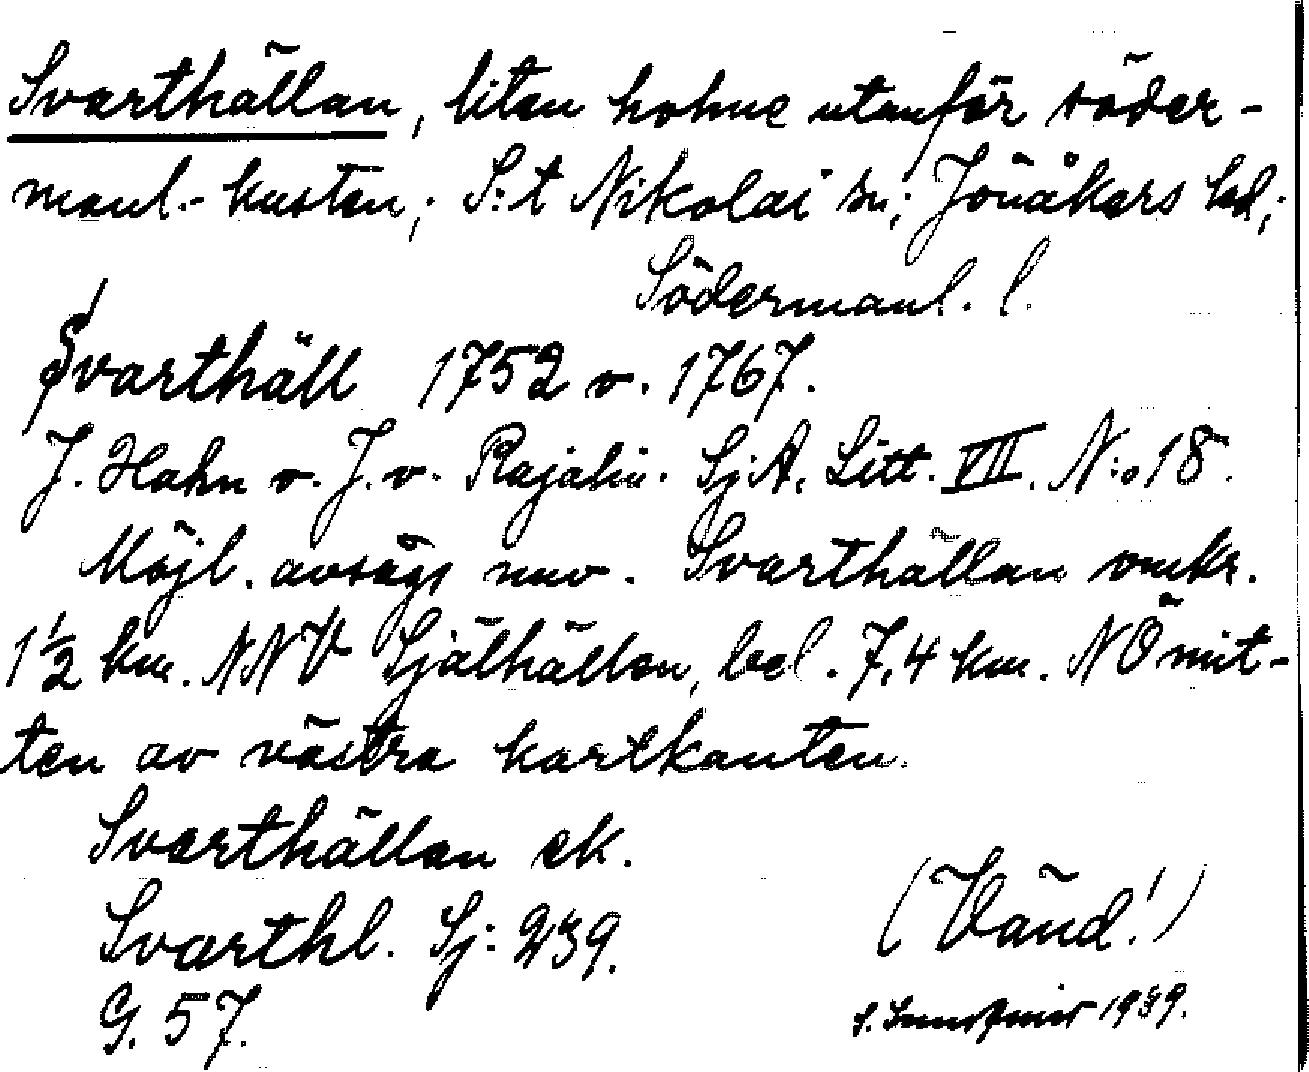 Svarthällan, liten holme utanför söder-
manl.-kusten; S:t Nikolai sn; Jönåkers hd;
Södermanl. l.
Svarthäll 1752 o. 1767.
J. Hahn o. J. v. Rajalin. Sj.A. Litt. VII. N:o 18.
Möjl. avsågs nuv. Svarthällan omkr.
1½ km. NNV Själhällen, bel. 7,4 km. NÖ mit-
ten av västra kartkanten.
Svarthällan ek.
Svarthl. Sj: 239.
G. 57.
(Vänd!)
1939.